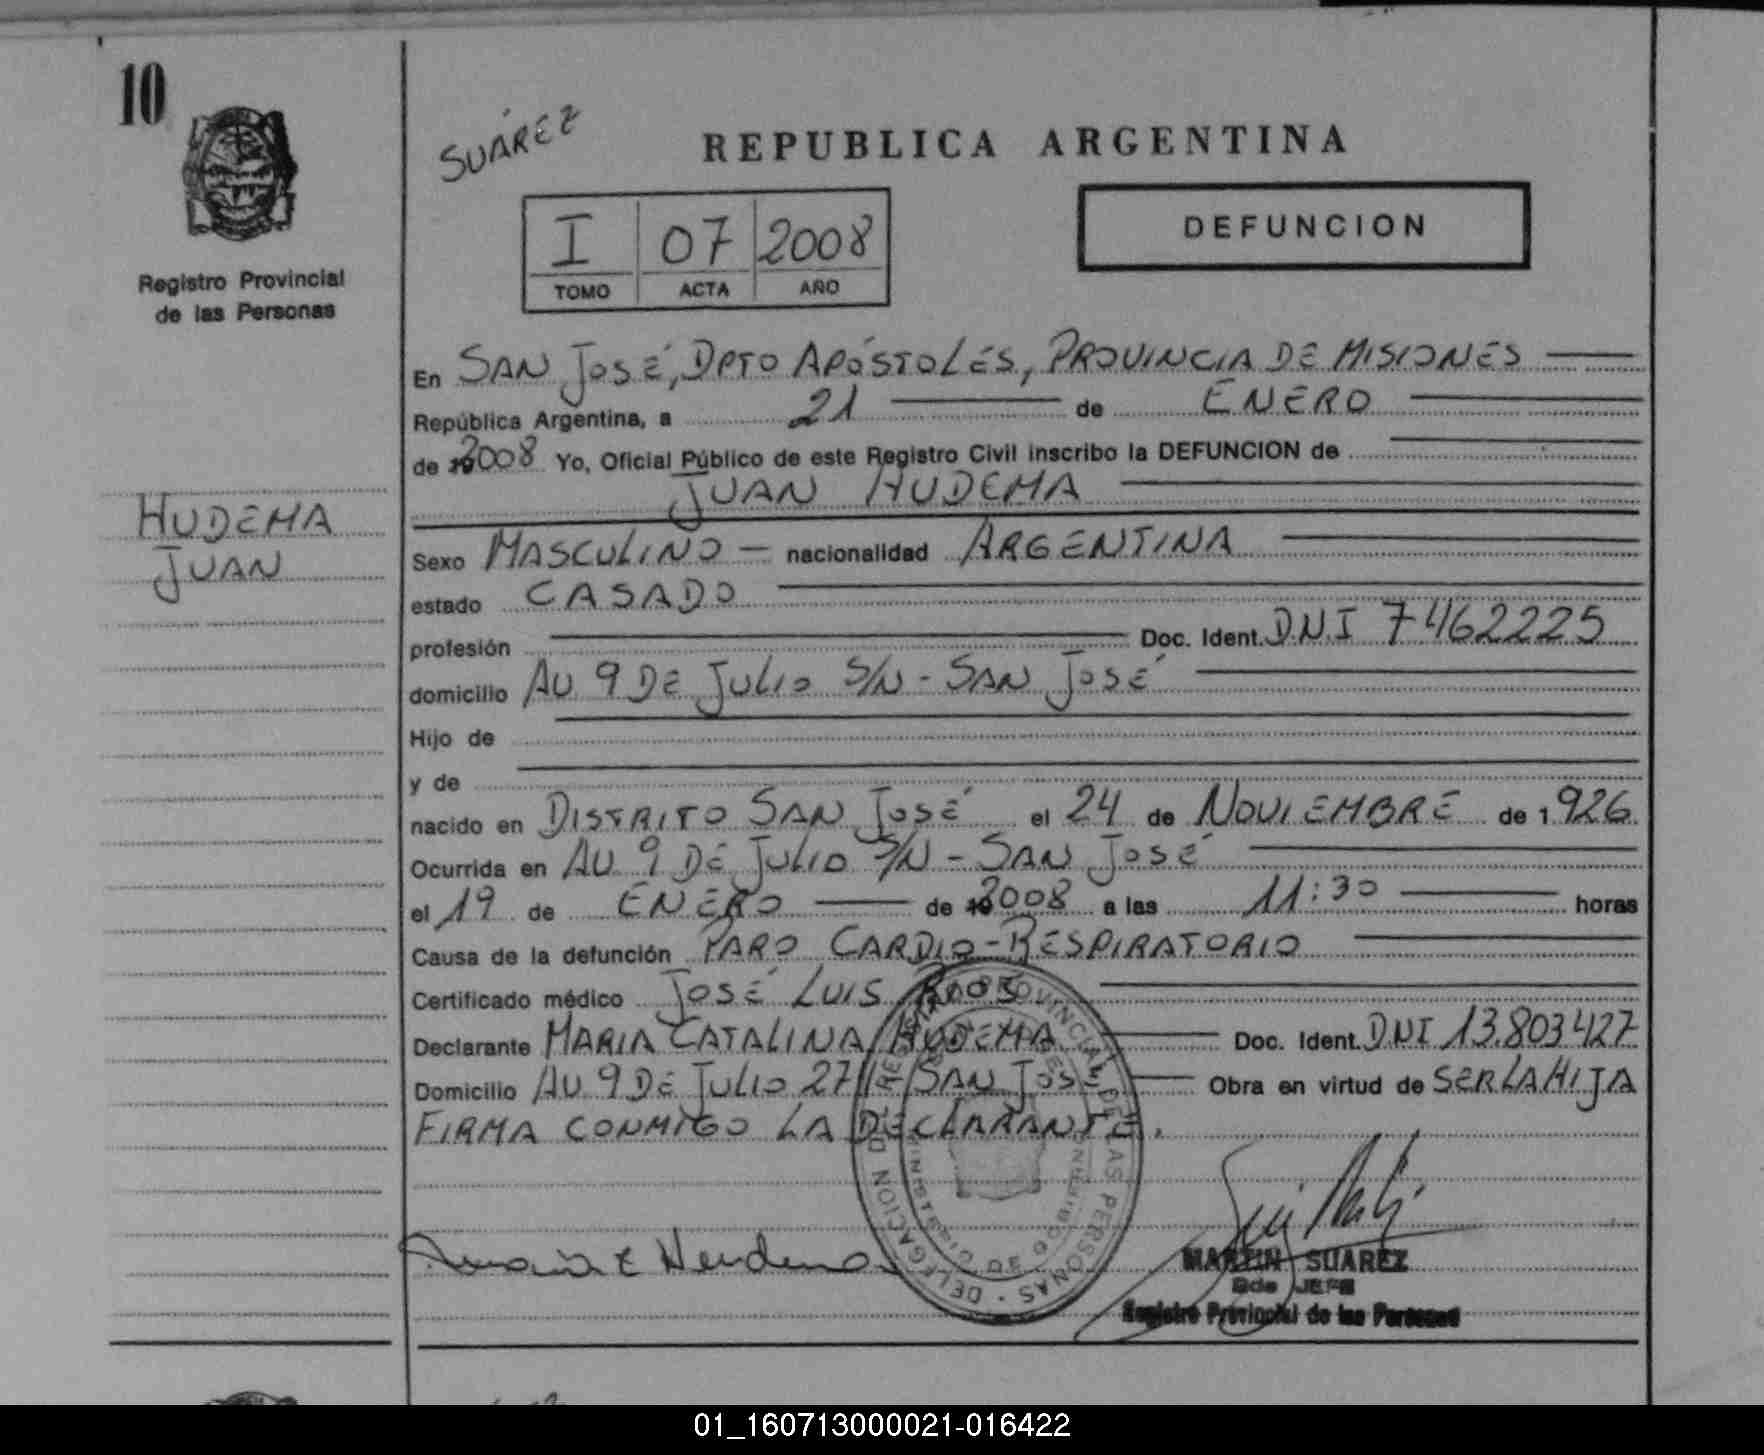 10
SUÁREZ
REPUBLICA ARGENTINA
I 07 2008
TOMO ACTA AÑO
DEFUNCION
Registro Provincial
de las Personas
HUDEMA
JUAN
En SAN JOSÉ, DPTO APÓSTOLES, PROVINCIA DE MISIONES
República Argentina, a 21 de ENERO
de 2008 Yo, Oficial Público de este Registro Civil inscribo la DEFUNCION de
JUAN HUDEMA
Sexo MASCULINO nacionalidad ARGENTINA
estado CASADO
profesión Doc. Ident. DNI 7462225
domicilio AV 9 DE JULIO S/N - SAN JOSÉ
Hijo de
y de
nacido en DISTRITO SAN JOSÉ el 24 de NOVIEMBRE de 1926
Ocurrida en AV 9 DE JULIO S/N - SAN JOSÉ
el 19 de ENERO de 2008 a las 11:30 horas
Causa de la defunción PARO CARDIO-RESPIRATORIO
Certificado médico JOSÉ LUIS RIOS
Declarante MARIA CATALINA HUDEMA Doc. Ident. DNI 13.803427
Domicilio AV 9 DE JULIO SAN JOSÉ Obra en virtud de SER LA HIJA
FIRMA CONMIGO LA DECLARANTE.
PROVINCIAL DE LAS PERSONAS · DELEGACION
MARTIN SUAREZ
JEFE
Registro Provincial de las Personas
01_160713000021-016422